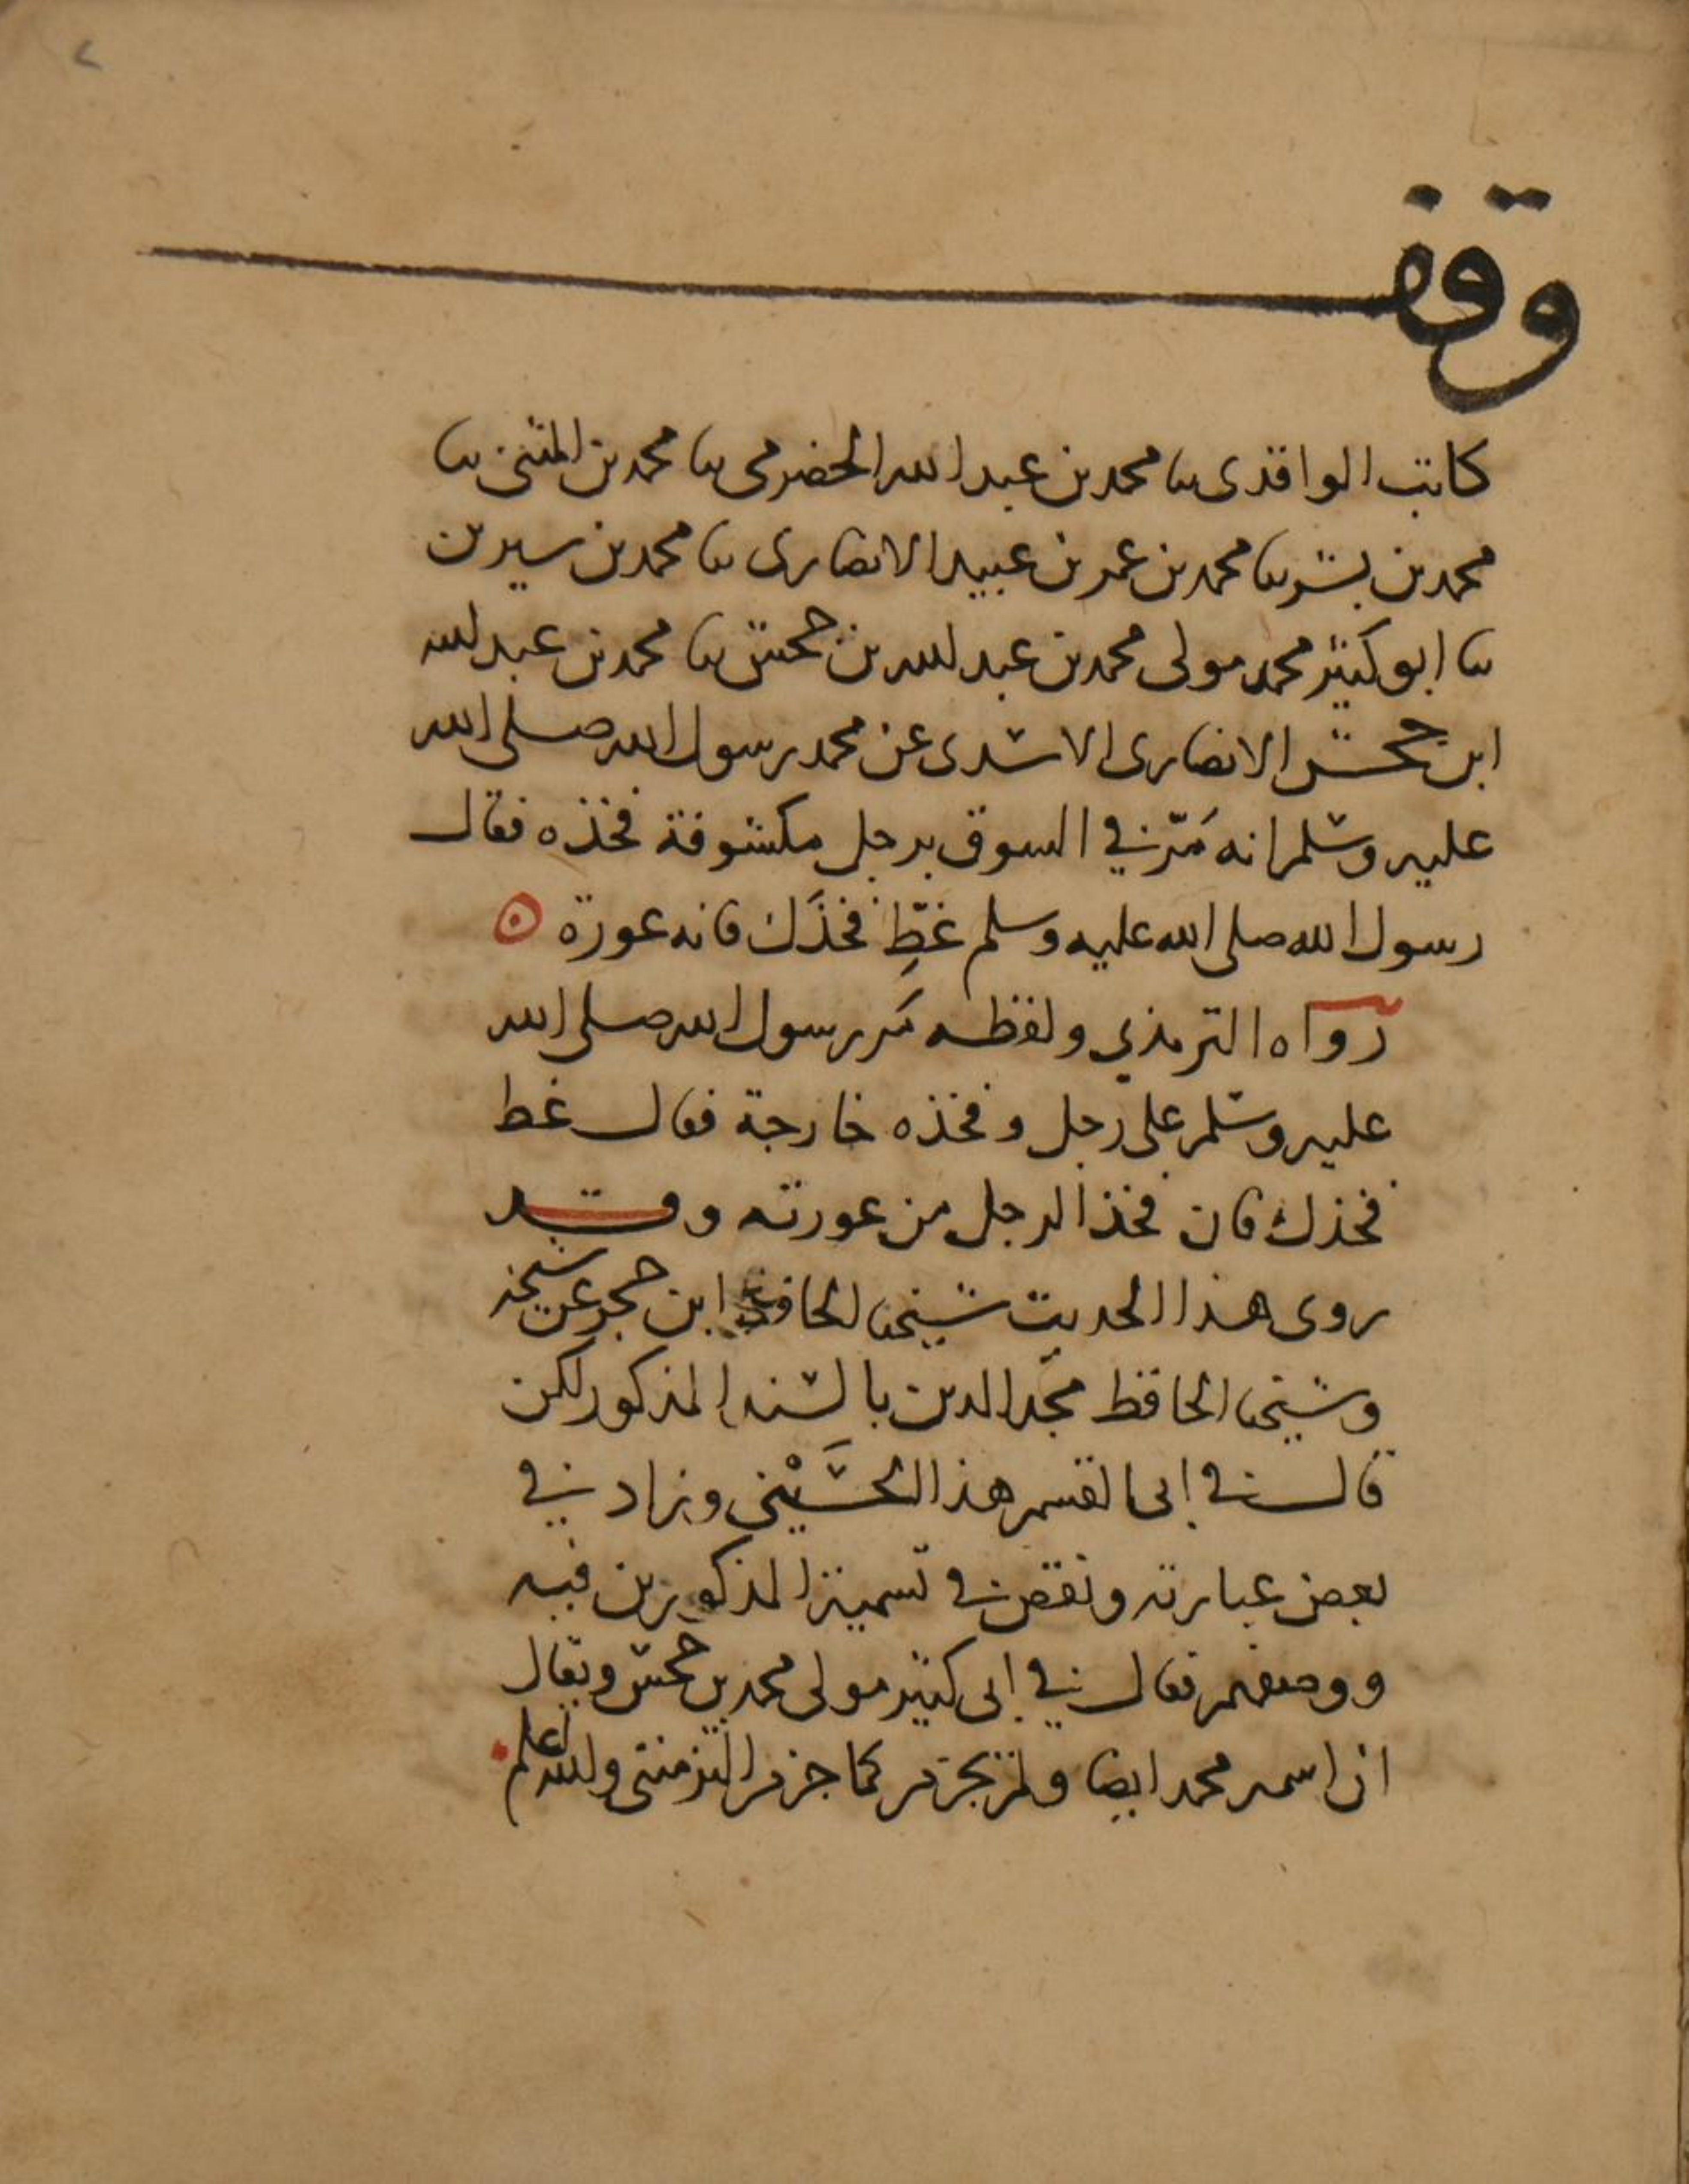 وقف
كاتب الواقدى ثنا محمد بن عبد الله الحضرمى ثنا محمد بن المثنى ثنا
محمد بن بشر ثنا محمد بن عمر بن عبيد الانصارى ثنا محمد بن سيرين
ثنا ابو كثير محمد مولى محمد بن عبد الله بن جحش ثنا محمد بن عبد الله
ابن جحش الانصارى الاسدى عن محمد رسول الله صلى الله
عليه وسلم انه مَرّ في السوق برجل مكشوفة فخذه فقال
رسول الله صلى الله عليه وسلم غَطِّ فخذَك فانه عورة
رواه الترمذي ولفظه مَر رسول الله صلى الله
عليه وسلم على رجل وفخذه خارجة فقال غط
فخذك فان فخذ الرجل من عورته وقد
روى هذا الحديث شيخنا الحافظ ابن حجر عن شيخه
وشيخنا الحافظ مجد الدين بالسند المذكور لكن
قال في ابى القسم هذا الحسَيْنى وزاد في
بعض عبارته ونقص في تسمية المذكورين فيه
ووصفهم فقال في ابى كثير مولى محمد بن جحش ويقال
ان اسمه محمد ايضا ولم يجزم كما جزم والله اعلم